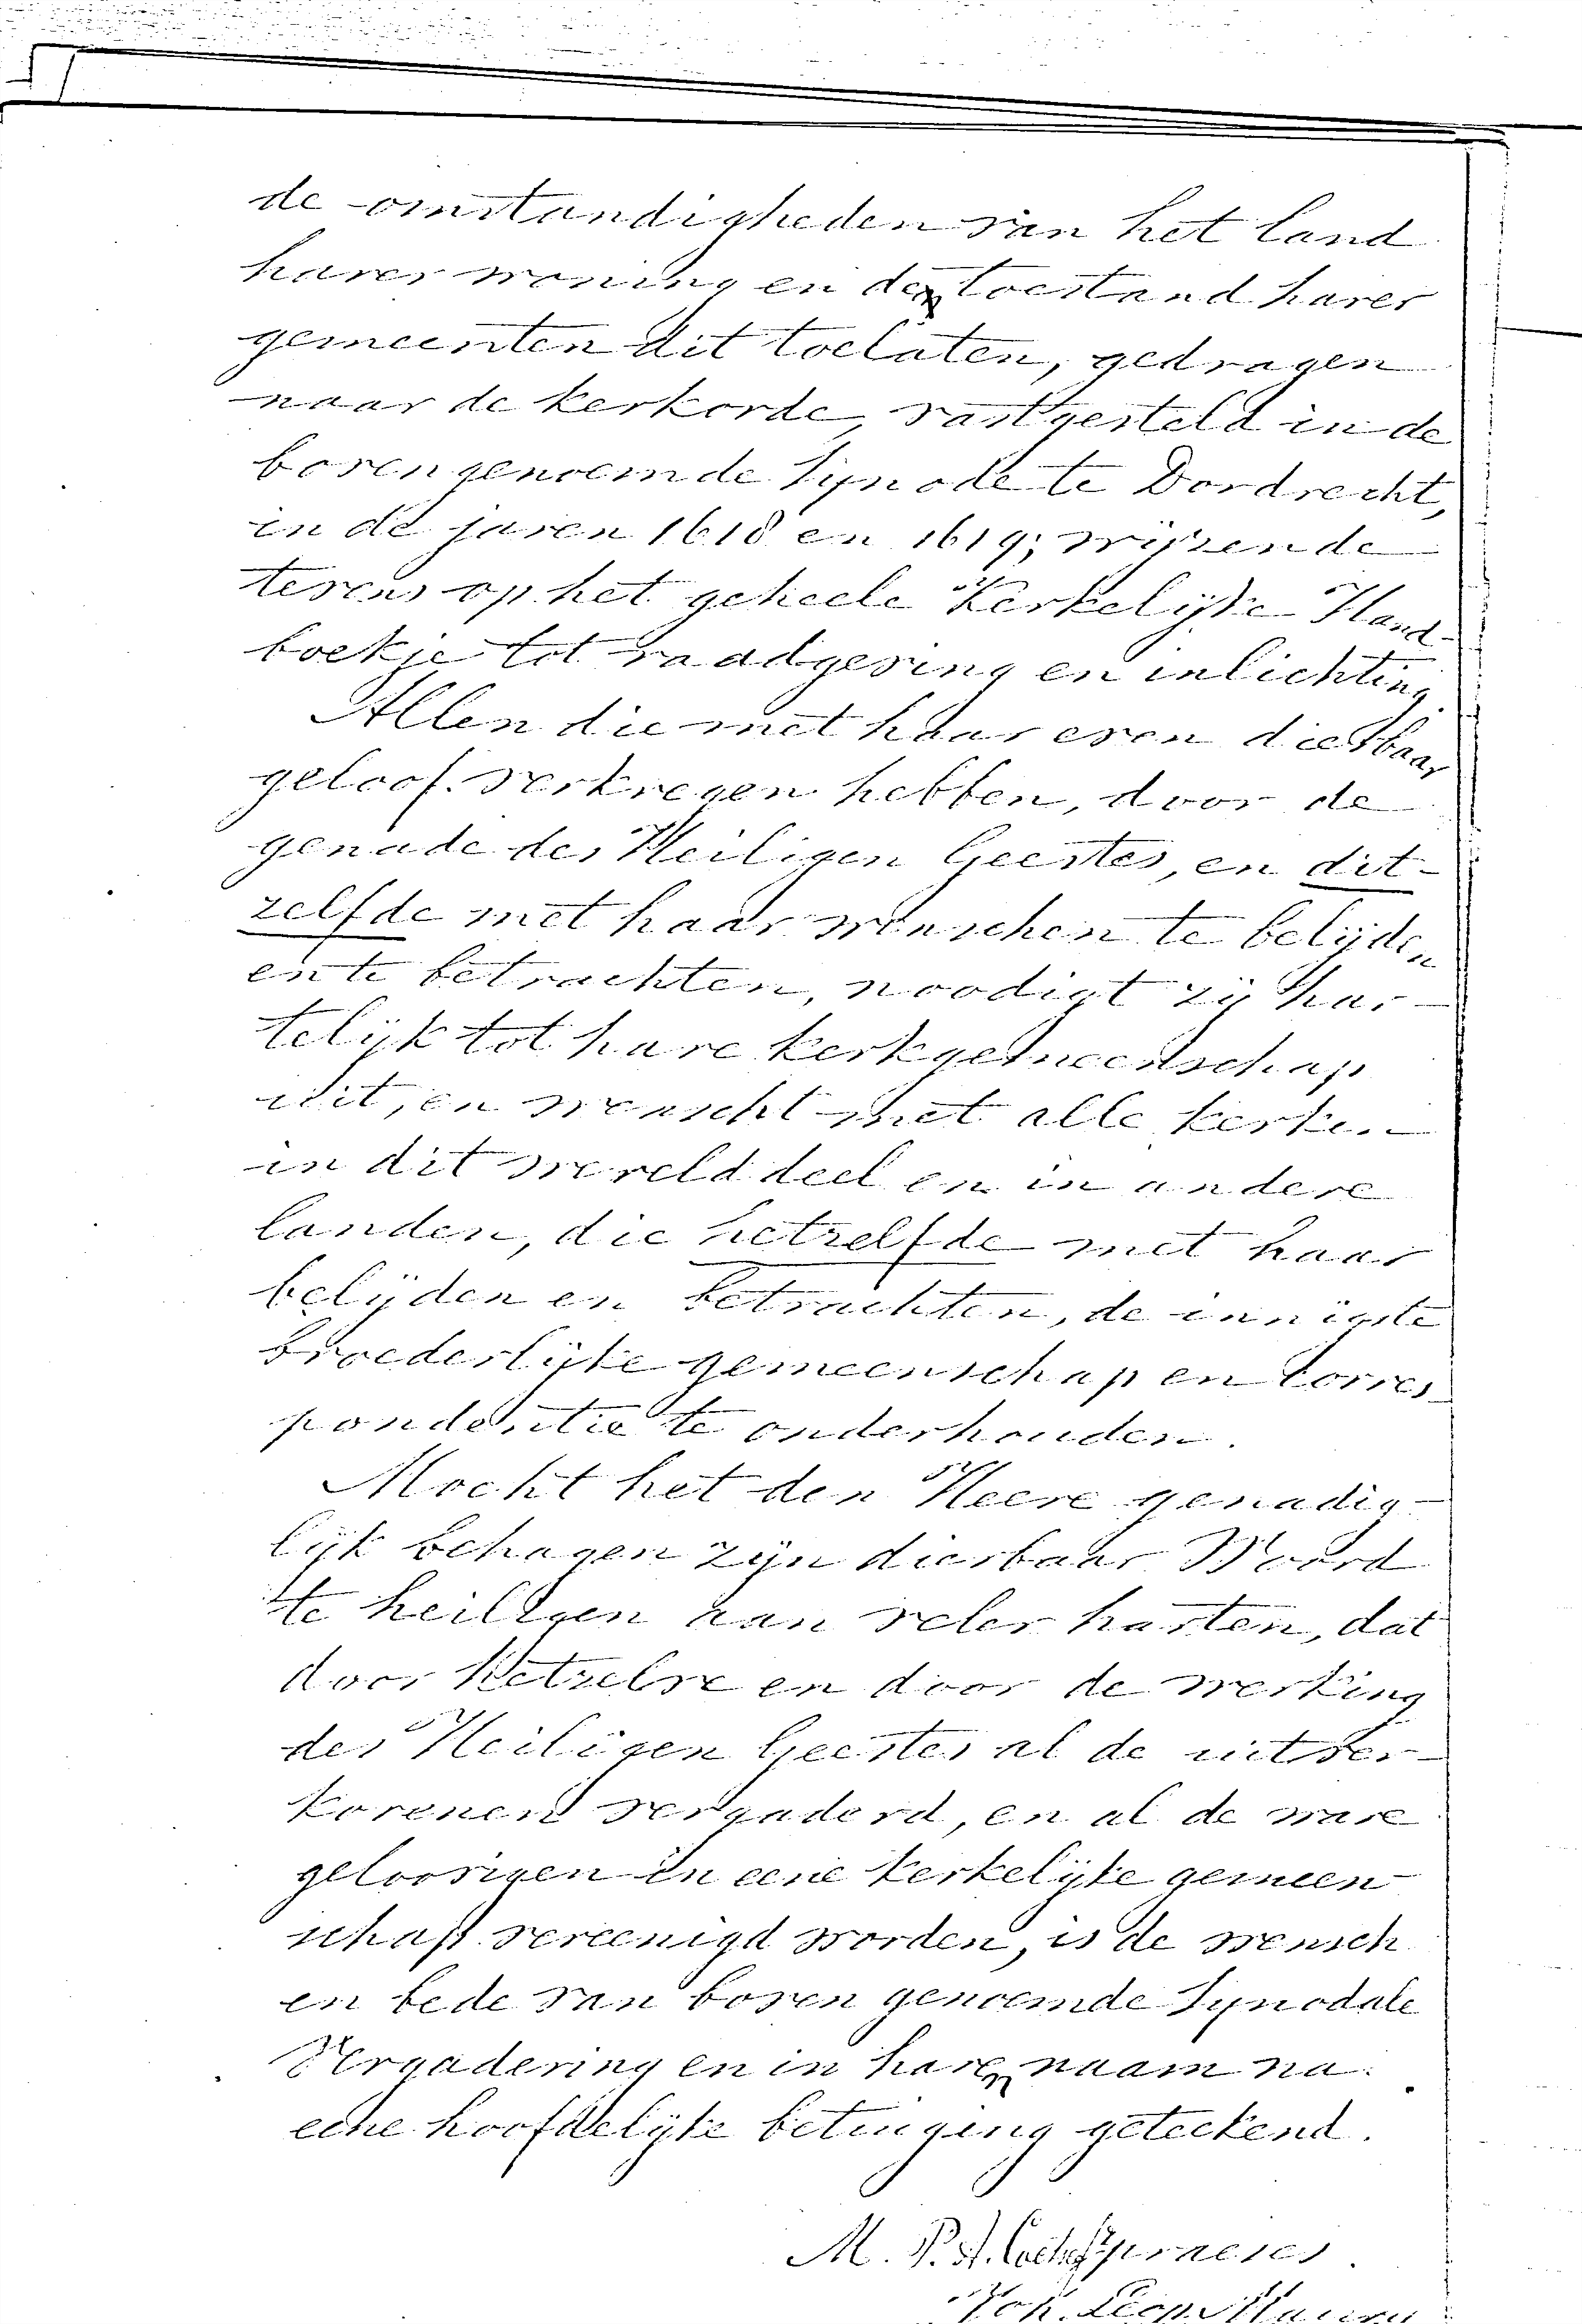 de omstandigheden van het land
harer woning en den toestand harer
gemeenten dit toelaten, gedragen
naar de kerkorde, vastgesteld in de
bovengenoemde Synode te Dordrecht,
in de jaren 1618 en 1619; wijzende
tevens op het geheele Kerkelijke Hand-
boekje tot raadgeving en inlichting.
Allen die met haar even dierbaar
geloof verkregen hebben, door de
genade des Heiligen Geestes, en dit-
zelfde met haar wenschen te belijden
en te betrachten, noodigt zij har-
telijk tot hare kerkgemeenschap
uit, en wenscht met alle kerken
in dit werelddeel en in andere
landen, die hetzelfde met haar
belijden en betrachten, de innigste
broederlijke gemeenschap en corres-
pondentie te onderhouden.
Mocht het den Heere genadig-
lijk behagen zijn dierbaar Woord
te heiligen aan veler harten, dat
door hetzelve en door de werking
des Heiligen Geestes al de uitver-
korenen vergaderd, en al de ware
geloovigen in eene kerkelijke gemeen
schap vereenigd worden, is de wensch
en bede van boven genoemde Synodale
Vergadering en in haren naam na
eene hoofdelijke betuiging geteekend.
M. P. A. praeses.
Joh.